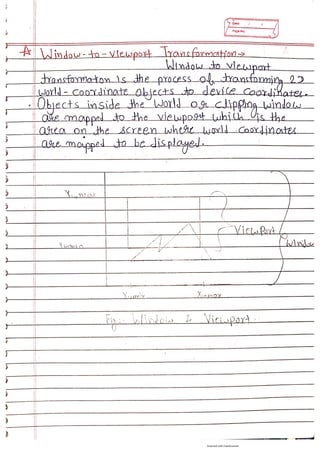 ☆ Window-to-Viewport Transformation →
Window to viewport
transformation is the process of transforming 2D
World-Coordinate objects to device Coordinates.
. Objects inside the World or clipping window
are mapped to the viewport which is the
area on the screen where world Coordinates
are mapped to be displayed.
ViewPort
Window
Fig:- Window & Viewport
Scanned with CamScanner